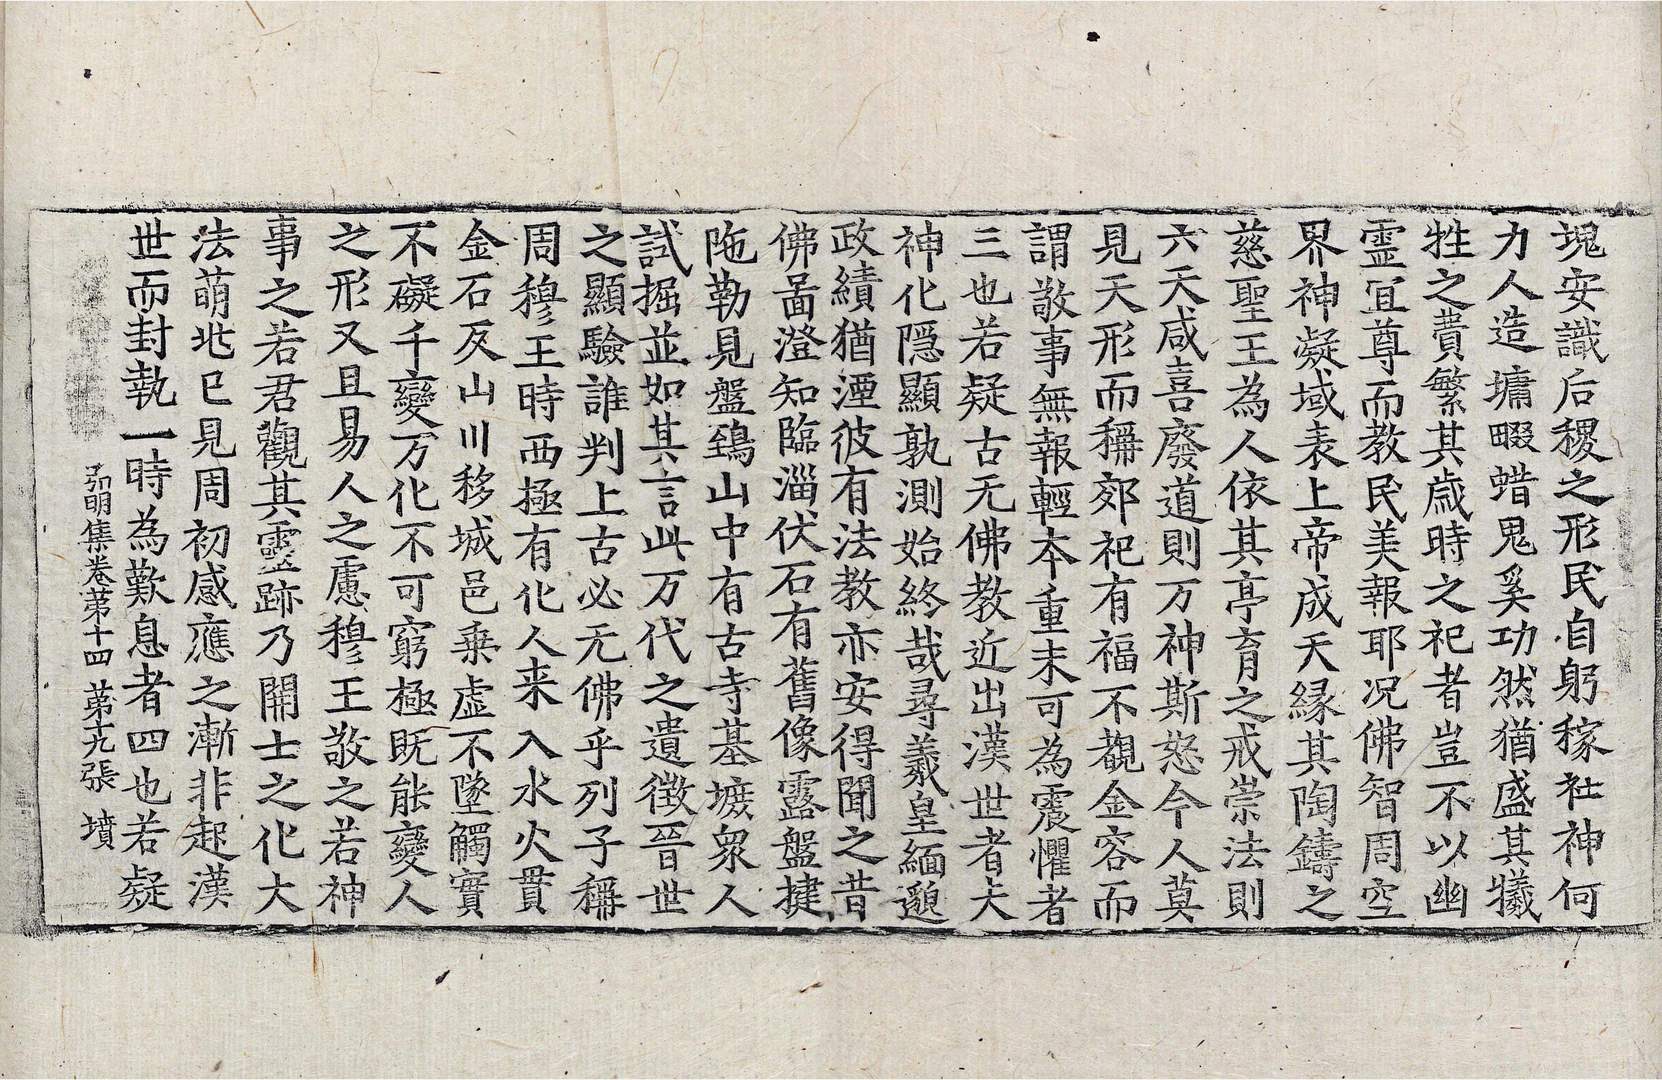 塊安識后稷之形民自躬稼社神何
力人造墉畷蜡鬼奚功然猶盛其犧
牲之費繁其歳時之祀者豈不以幽
靈冝尊而教民美報耶况佛智周空
界神凝域表上帝成天縁其陶鑄之
慈聖王為人依其亭育之戒崇法則
六天咸喜廢道則万神斯怒今人莫
見天形而稱郊祀有福不覩金容而
謂敬事無報輕本重末可為震懼者
三也若疑古无佛教近出漢世者夫
神化隱顯孰測始終哉尋羲皇緬邈
政績猶湮彼有法教亦安得聞之昔
佛啚澄知臨淄伏石有舊像露盤揵
陁勒見盤鵄山中有古寺基墌衆人
試掘並如其言此万代之遺徵晉世
之顯驗誰判上古必无佛乎列子稱
周穆王時西極有化人来入水火貫
金石反山川移城邑乗虚不墜觸實
不礙千變万化不可窮極既能變人
之形又且易人之慮穆王敬之若神
事之若君觀其靈跡乃開士之化大
法萌兆已見周初感應之漸非起漢
世而封執一時為歎息者四也若疑
弘明集卷苐十四 苐十九張 墳